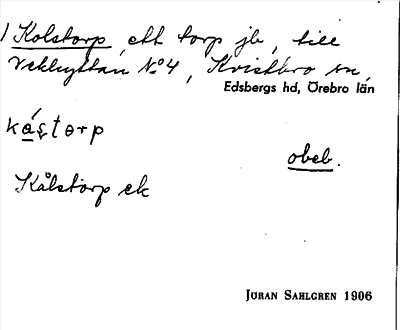 1 Kolstorp, ett torp jb, till
Vekhyttan No 4, Kvistbro sn,
Edsbergs hd, Örebro län
kåstorp
obeb.
Kålstorp ek
JÖRAN SAHLGREN 1906